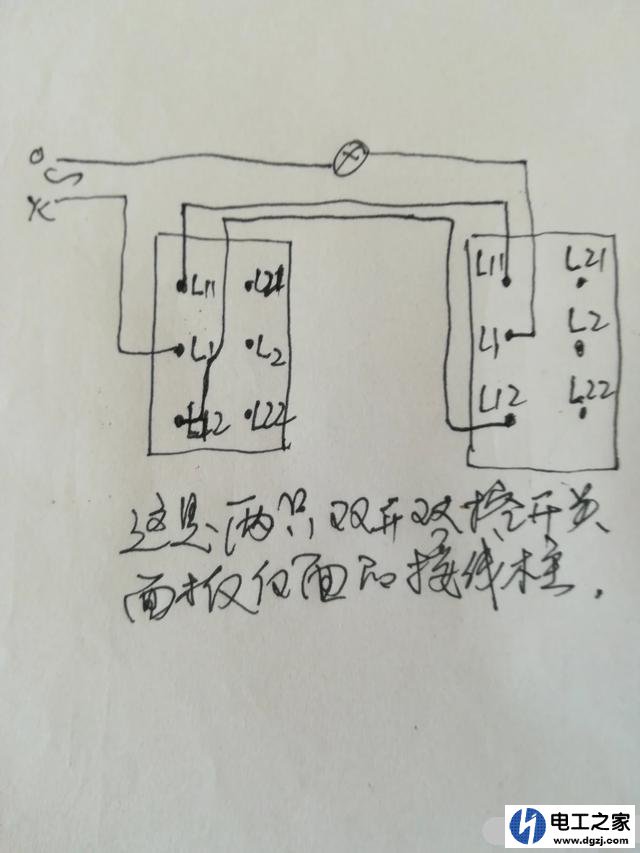 O
K
L11
L21
L1
L2
L12
L22
L11
L21
L1
L2
L12
L22
这是两只双开双控开关
面板后面的接线柱.
电工之家
www.dgzj.com